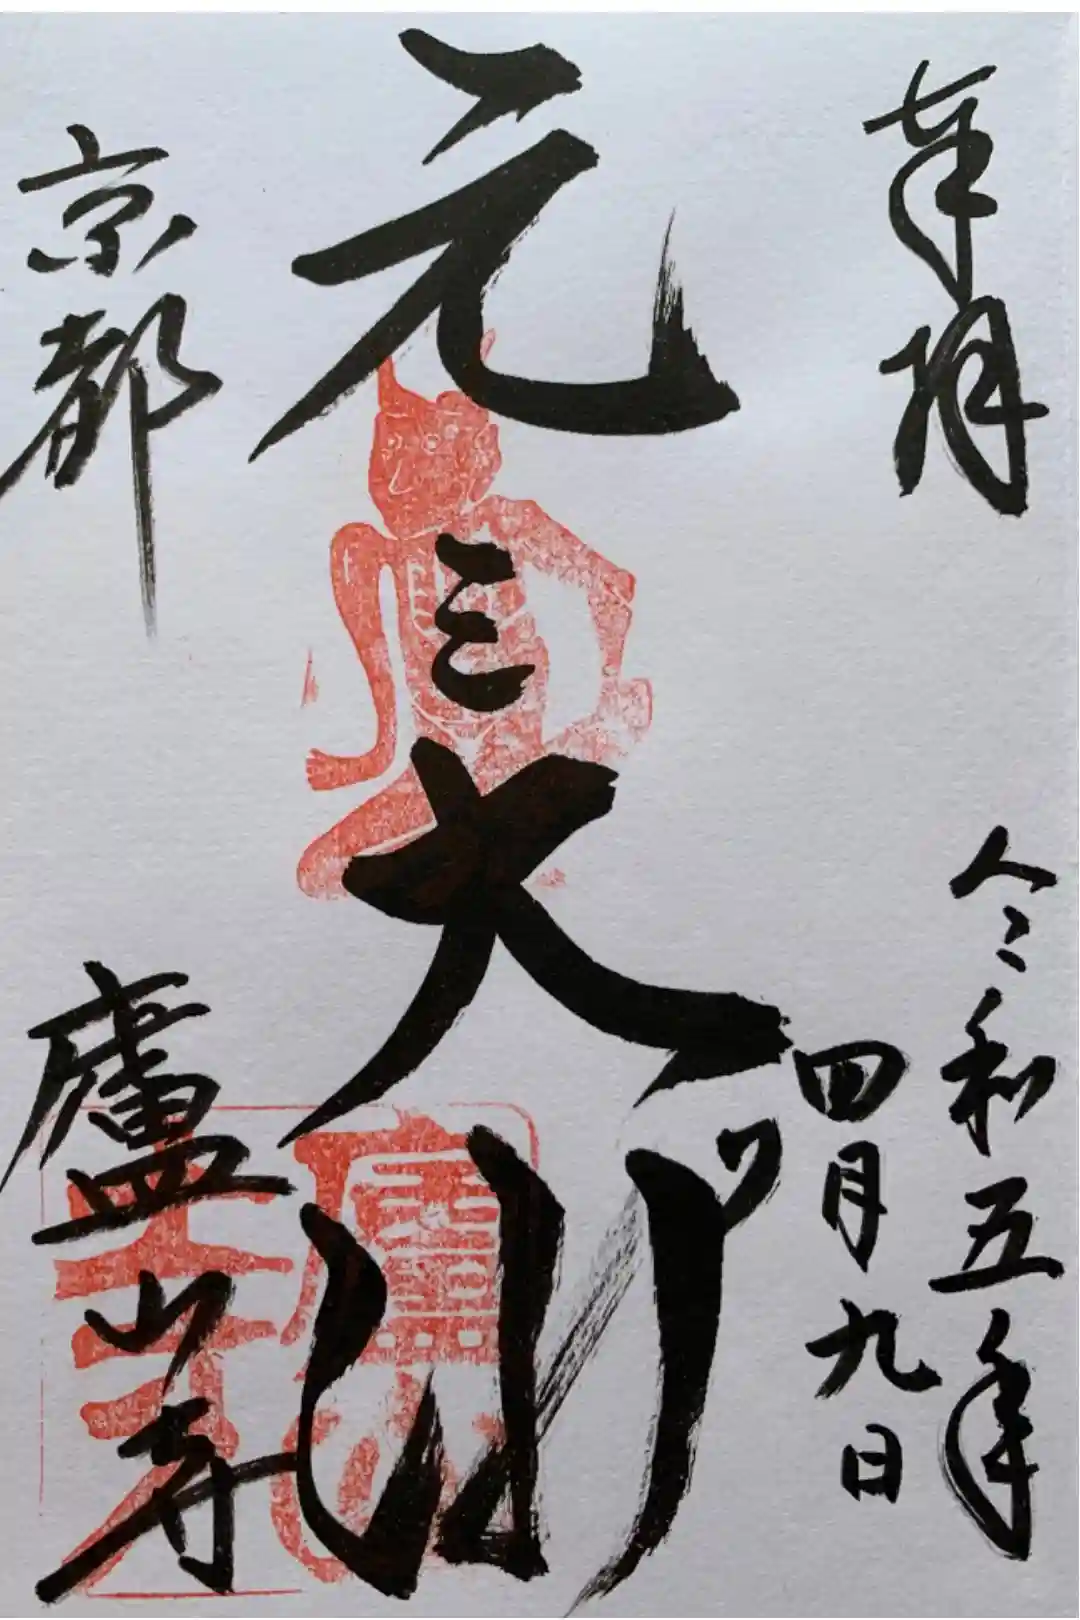 奉拝
令和五年
四月九日
元三大師
京都 廬山寺